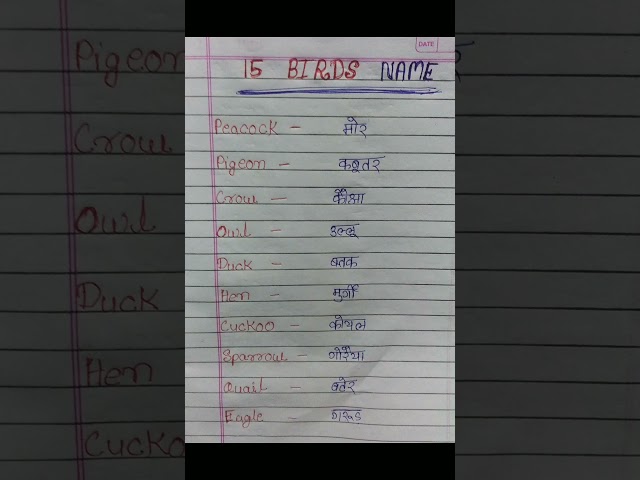 DATE
15 BIRDS NAME
Peacock - मोर
Pigeon - कबूतर
Crow - कौआ
Owl - उल्लू
Duck - बतक
Hen - मुर्गी
Cuckoo - कोयल
Sparrow - गौरैया
Quail - बटेर
Eagle - गरूड
Pigeon
Crow
Owl
Duck
Hen
Cucko